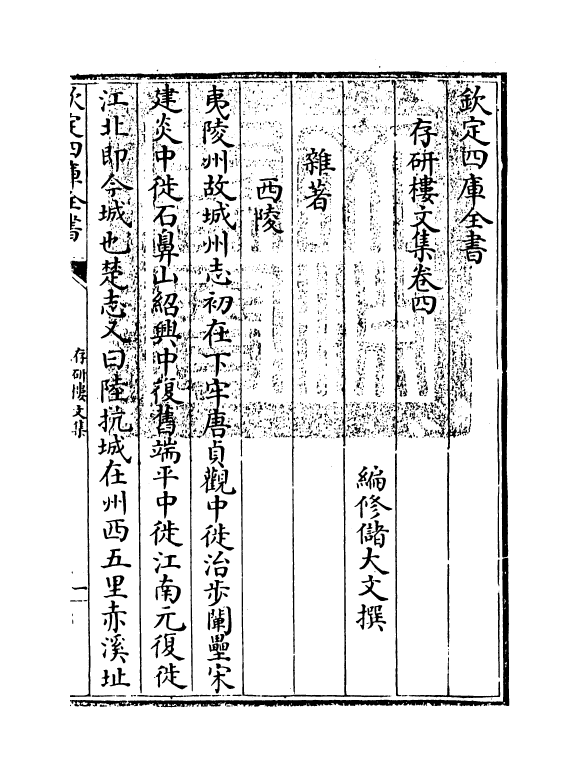 欽定四庫全書
存研樓文集卷四
編修儲大文撰
雜著
西陵
夷陵州故城州志初在下牢唐貞觀中徙治步闡壘宋
建炎中徙石鼻山紹興中復舊端平中徙江南元復徙
江北即今城也楚志又曰陸抗城在州西五里赤溪址
欽定四庫全書
存研樓文集
一